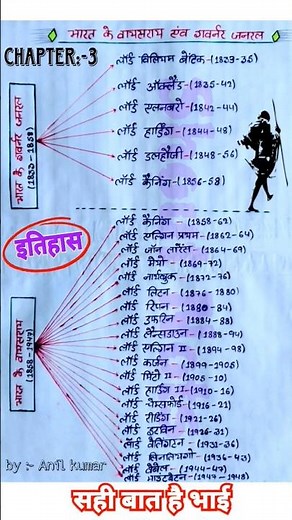 भारत के वायसराय एंव गवर्नर जनरल
CHAPTER:-3
लॉर्ड विलियम बेंटिक - (1833-35)
लॉर्ड ऑकलैंड - (1835-42)
लॉर्ड एलनबरो - (1842-44)
लॉर्ड हार्डिंग - (1844-48)
लॉर्ड डलहौजी - (1848-56)
लॉर्ड कैनिंग - (1856-58)
भारत के गवर्नर जनरल
(1833-1858)
इतिहास
लॉर्ड कैनिंग - (1858-62)
लॉर्ड एल्गिन प्रथम - (1862-64)
लॉर्ड जॉन लॉरेंस - (1864-69)
लॉर्ड मेयो - (1869-72)
लॉर्ड नार्थब्रुक - (1872-76)
लॉर्ड लिटन - (1876-1880)
लॉर्ड रिपन - (1880-84)
लॉर्ड डफरिन - (1884-88)
लॉर्ड लैन्सडाउन - (1888-94)
लॉर्ड एल्गिन II - (1894-98)
लॉर्ड कर्जन - (1899-1905)
लॉर्ड मिंटो II - (1905-10)
लॉर्ड हार्डिंग II - (1910-16)
लॉर्ड चेम्सफोर्ड - (1916-21)
लॉर्ड रीडिंग - (1921-26)
लॉर्ड इरविन - (1926-31)
लॉर्ड वेलिंगटन - (1931-36)
लॉर्ड लिनलिथगो - (1936-43)
लॉर्ड वेवेल - (1944-47)
लॉर्ड माउंटबेटन - (1947-1948)
भारत के वायसराय
(1858-1947)
by :- Anil kumar
सही बात है भाई